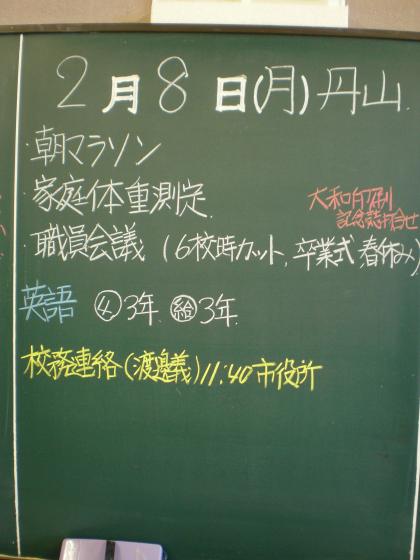 2月8日(月)丹山
・朝マラソン
・家庭体重測定
大和印刷
記念誌打合せ
・職員会議 (6校時カット, 卒業式 春休み)
英語 ④3年 ㊗3年
校務連絡(渡邊義)11:40市役所